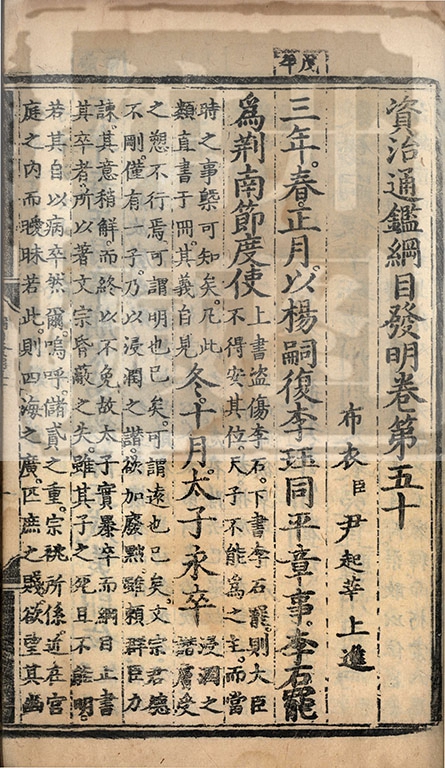 戊午
資治通鑑綱目發明卷第五十
布衣臣尹起莘上進
三年。春。正月。以楊嗣復李珏同平章事。李石罷
爲荆南節度使
上書盜傷李石。下書李石罷。則大臣
不得安其位。天子不能爲之主。而當
時之事槩可知矣。凡此
類直書于冊。其義自見
冬。十月。太子永卒
浸潤之
譖膚受
之愬不行焉。可謂明也已矣。可謂遠也已矣。文宗君德
不剛。僅有一子。乃以浸潤之譖。欲加廢黜。雖頼群臣力
諫。其意稍解。而終以不免。故太子實暴卒。而綱目止書
其卒者。所以著文宗昏蔽之失。雖其子之死且不能明。
若其自以病卒然爾。嗚呼。儲貳之重。宗祧所係。近在宮
庭之内而曖昧若此。則四海之廣。匹庶之賤。欲望其幽